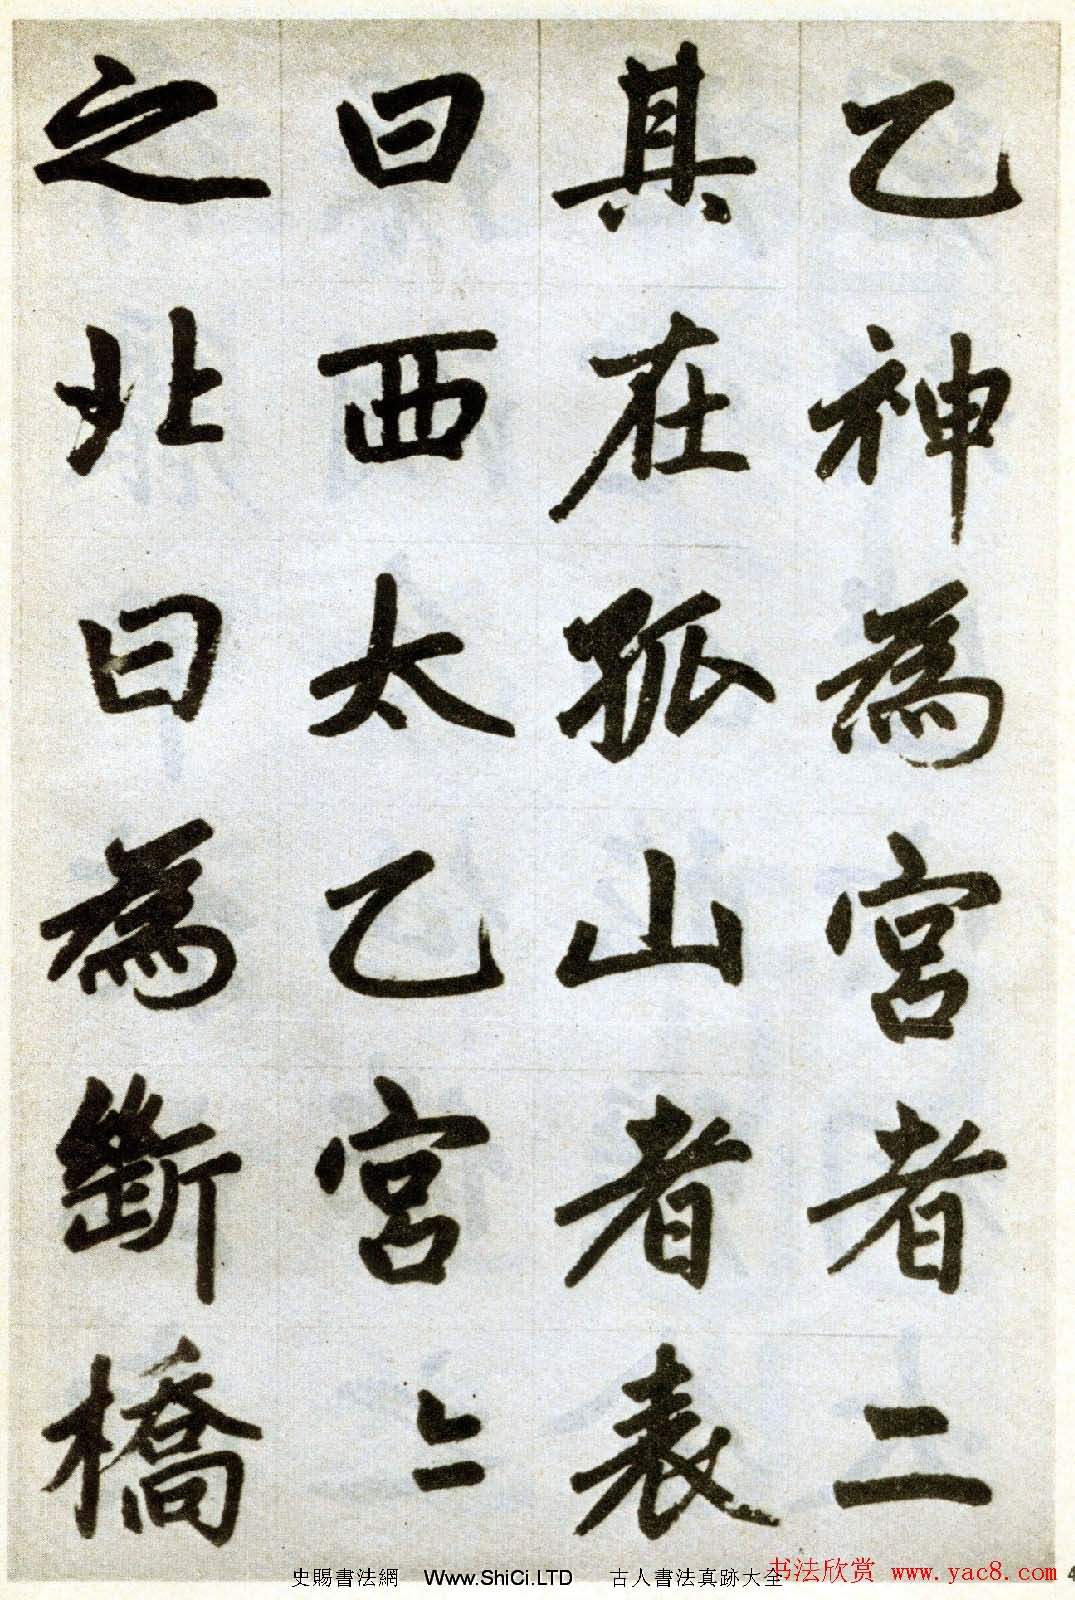 乙神為宮者二
其在孤山者表
曰西太乙宮〻
之北曰為斷橋
史賜書法網 Www.ShiCi.LTD 古人書法真跡大全
书法欣赏 www.yac8.com
4